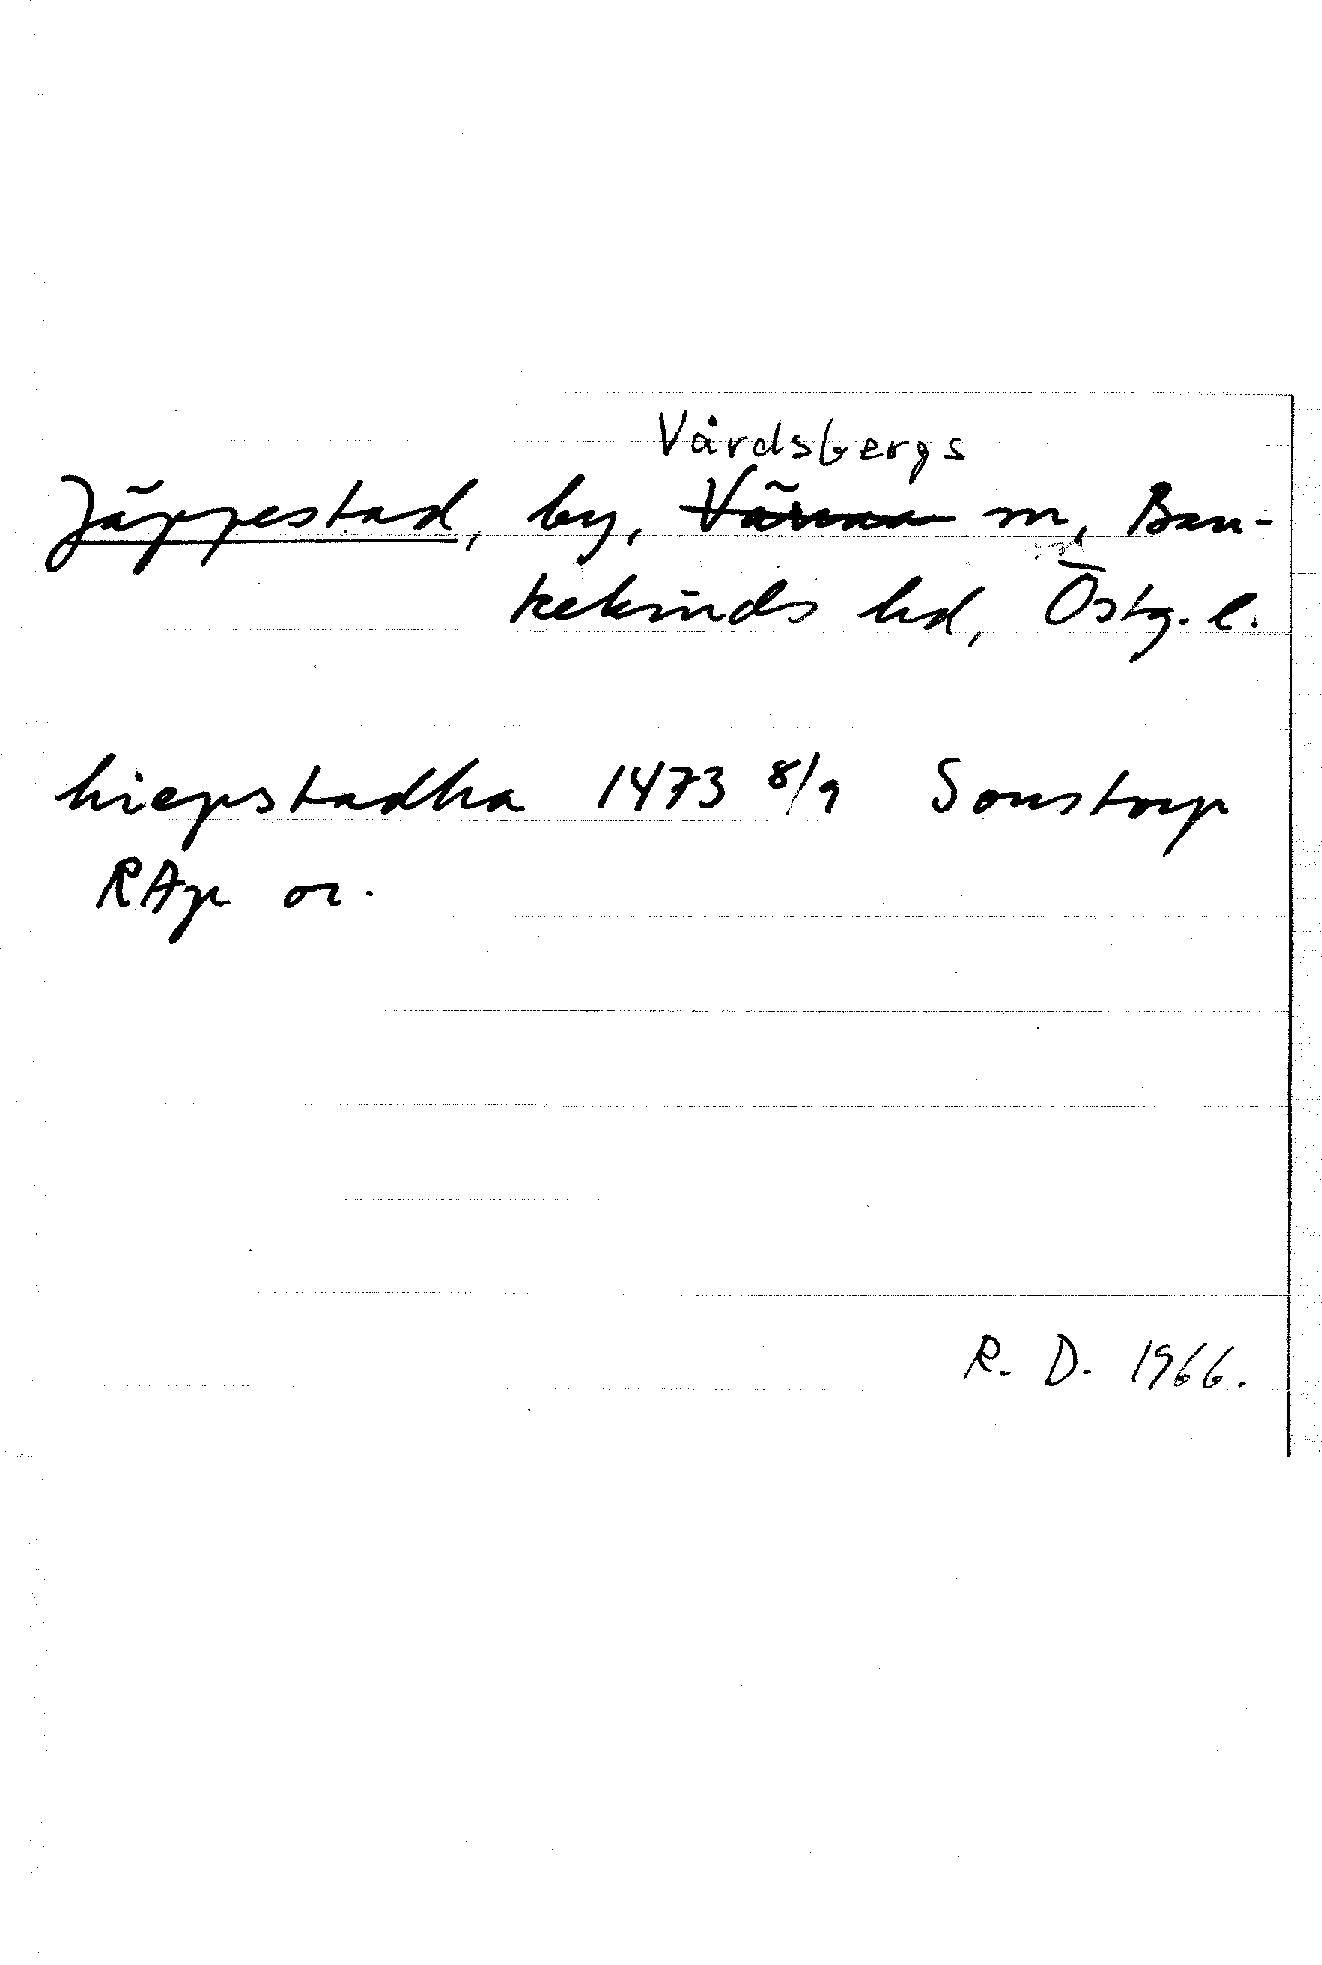 Vårdsbergs
Jäppestad, by, Värna sn, Ban-
kekinds hd, Östg. l.
hiepstadha 1473 8/9 Sonstorp
RAp or.
R. D. 1966.